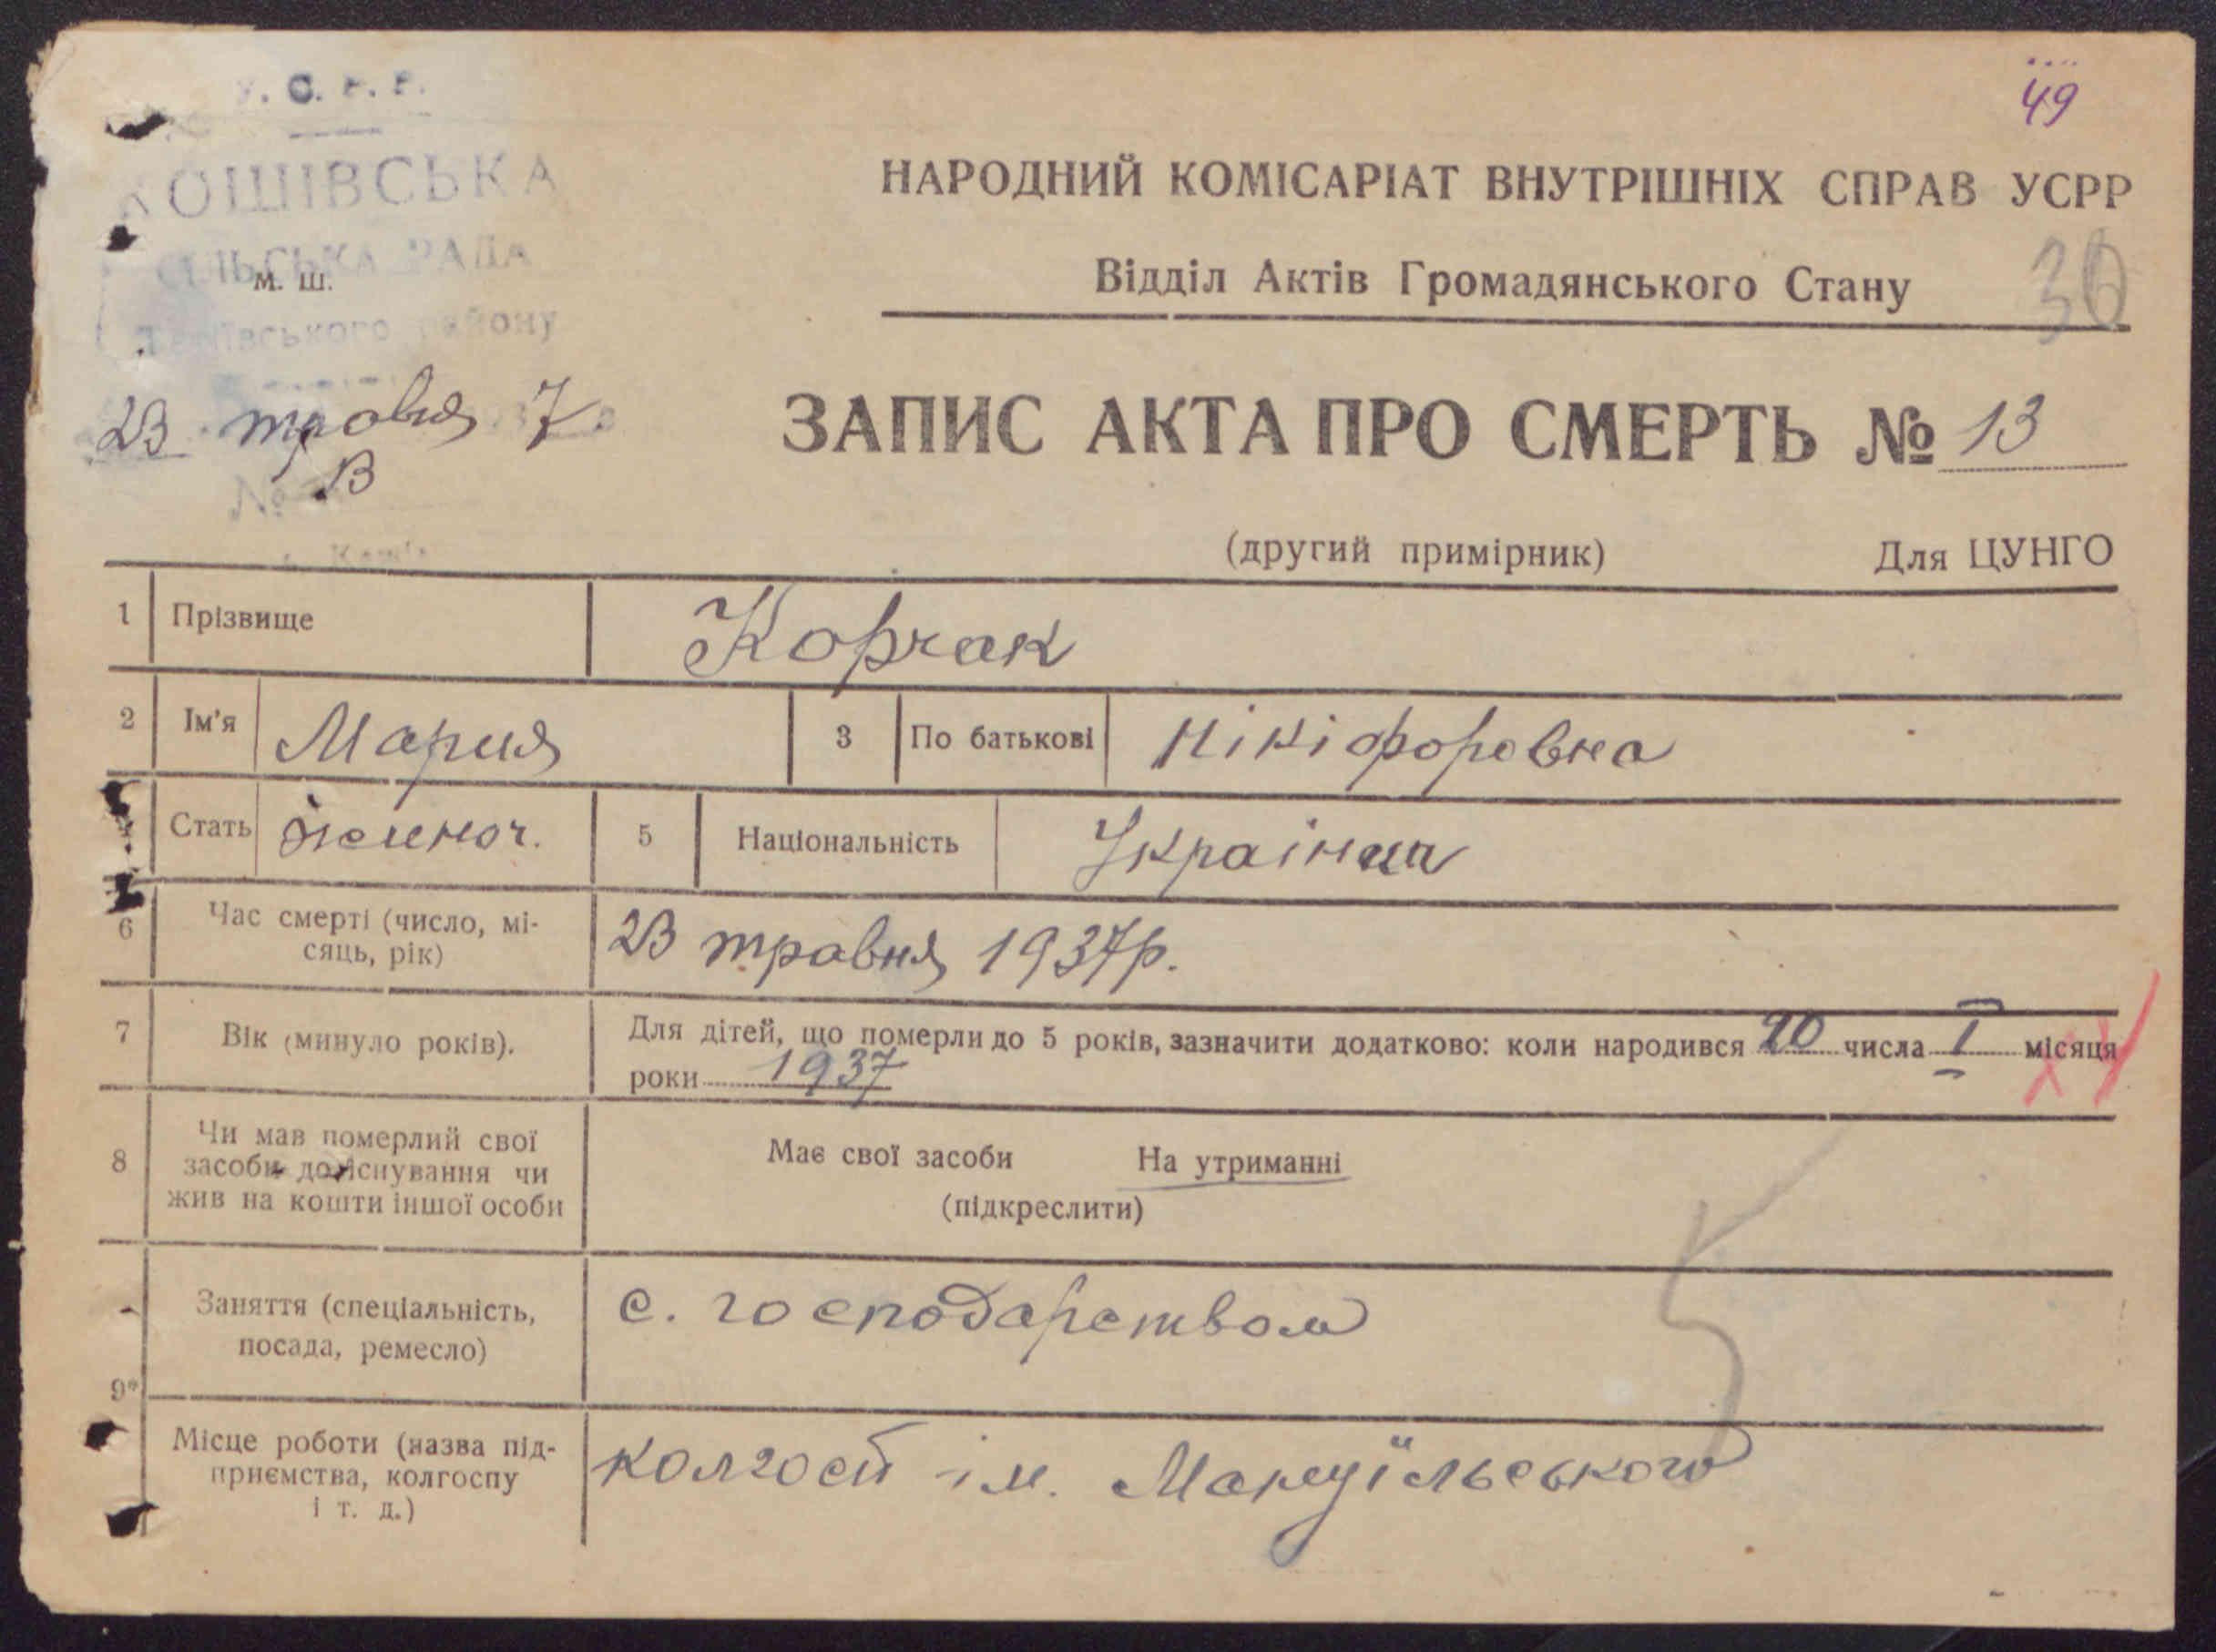 У. С. Р. Р.
49
КОШІВСЬКА
НАРОДНИЙ КОМІСАРІАТ ВНУТРІШНІХ СПРАВ УСРР
СІЛЬСЬКА РАДА
М. Ш.
Відділ Актів Громадянського Стану
30
району
23 травня 7
ЗАПИС АКТА ПРО СМЕРТЬ № 13
№ 13
(другий примірник) Для ЦУНГО
1 Прізвище Корчак
2 Ім'я Мария 3 По батькові Нікіфоровна
Стать жіноч. 5 Національність Українка
6 Час смерті (число, мі-
сяць, рік)
23 травня 1937р.
7 Вік (минуло років).
Для дітей, що померли до 5 років, зазначити додатково: коли народився 20 числа I місяця
роки 1937
8 Чи мав померлий свої
засоби до існування чи
жив на кошти іншої особи
Має свої засоби На утриманні
(підкреслити)
9*
Заняття (спеціальність,
посада, ремесло)
с. господарством
Місце роботи (назва під-
приємства, колгоспу
і т. д.)
колгосп ім. Мануїльського